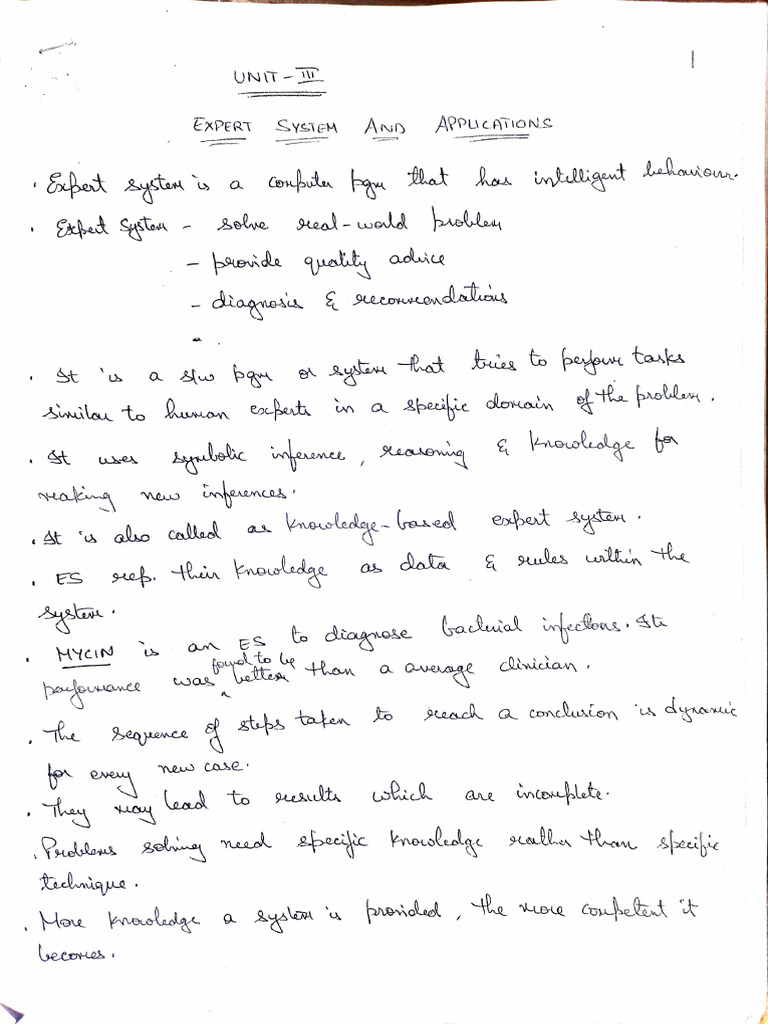 1
UNIT - III
EXPERT SYSTEM AND APPLICATIONS
. Expert system is a computer pgm that has intelligent behaviour.
. Expert System - solve real-world problem
- provide quality advice
- diagnosis & recommendations
-
. It is a s/w pgm or system that tries to perform tasks
similar to human experts in a specific domain of the problem.
. It uses symbolic inference, reasoning & knowledge for
making new inferences.
. It is also called as knowledge-based expert system.
. ES rep. their knowledge as data & rules within the
system.
. MYCIN is an ES to diagnose bacterial infections. Its
performance was found to be better than a average clinician.
. The sequence of steps taken to reach a conclusion is dynamic
for every new case.
. They may lead to results which are incomplete.
. Problems solving need specific knowledge rather than specific
technique.
. More knowledge a system is provided, the more competent it
becomes.